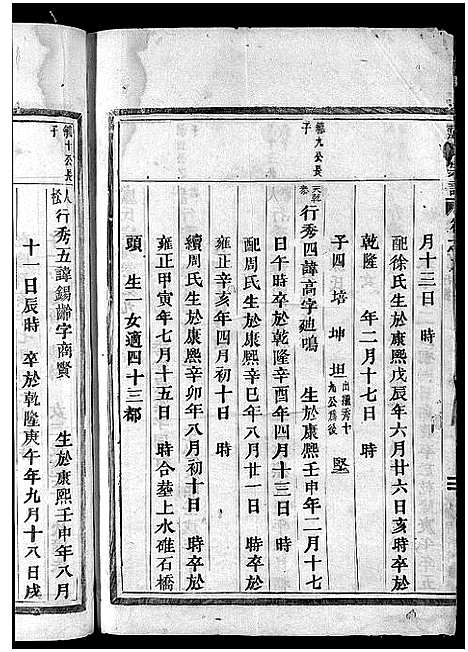 月十三日　時
配徐氏生於康熙戊辰年六月廿六日亥時卒於
乾隆　年二月十七日　時
子四　培　坤　坦　出繼秀十九公爲後　堅
九公長子
行秀四諱高字廸鳴　生於康熙壬申年二月十七
日午時卒於乾隆辛酉年四月十三日　時
配周氏生於康熙辛巳年八月廿一日　時卒於
雍正辛亥年四月初十日　時
續周氏生於康熙辛卯年八月初十日　時卒於
雍正甲寅年七月十五日　時合墓上水碓石橋
頭　生一女適四十三都
十公長子
行秀五諱錫齡字商賢　生於康熙壬申年八月
十一日辰時　卒於乾隆庚午年九月十八日戌